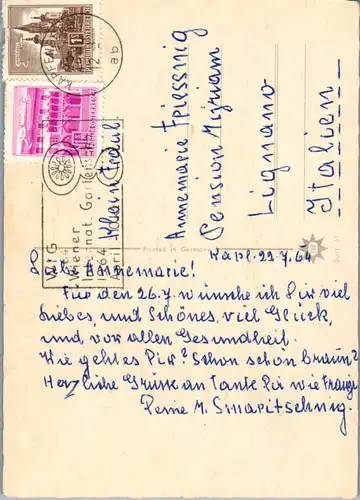 ab
WIG
64
Wiener
Internat. Garten
1964
April
Fräul.
Annemarie Friessnig
Pension Myriam
Lignano
Italien
Printed in Germany
Kapf. 22.7.64
Liebe Annemarie!
Für den 26.7. wünsche ich Dir viel
Liebes, und Schönes, viel Glück,
und vor allen Gesundheit.
Wie geht es Dir? Schon schön braun?
Herzliche Grüsse an Tante Dir wie Franzi
Deine M. Smaritschnig.